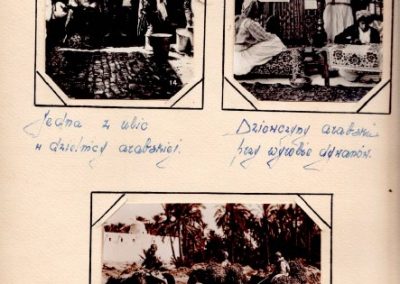 Jedna z ulic
w dzielnicy arabskiej.
Dziewczyny arabskie
przy wyrobie dywanów.